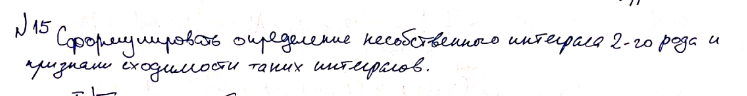 №15 Сформулировать определение несобственного интеграла 2-го рода и
признаки сходимости таких интегралов.